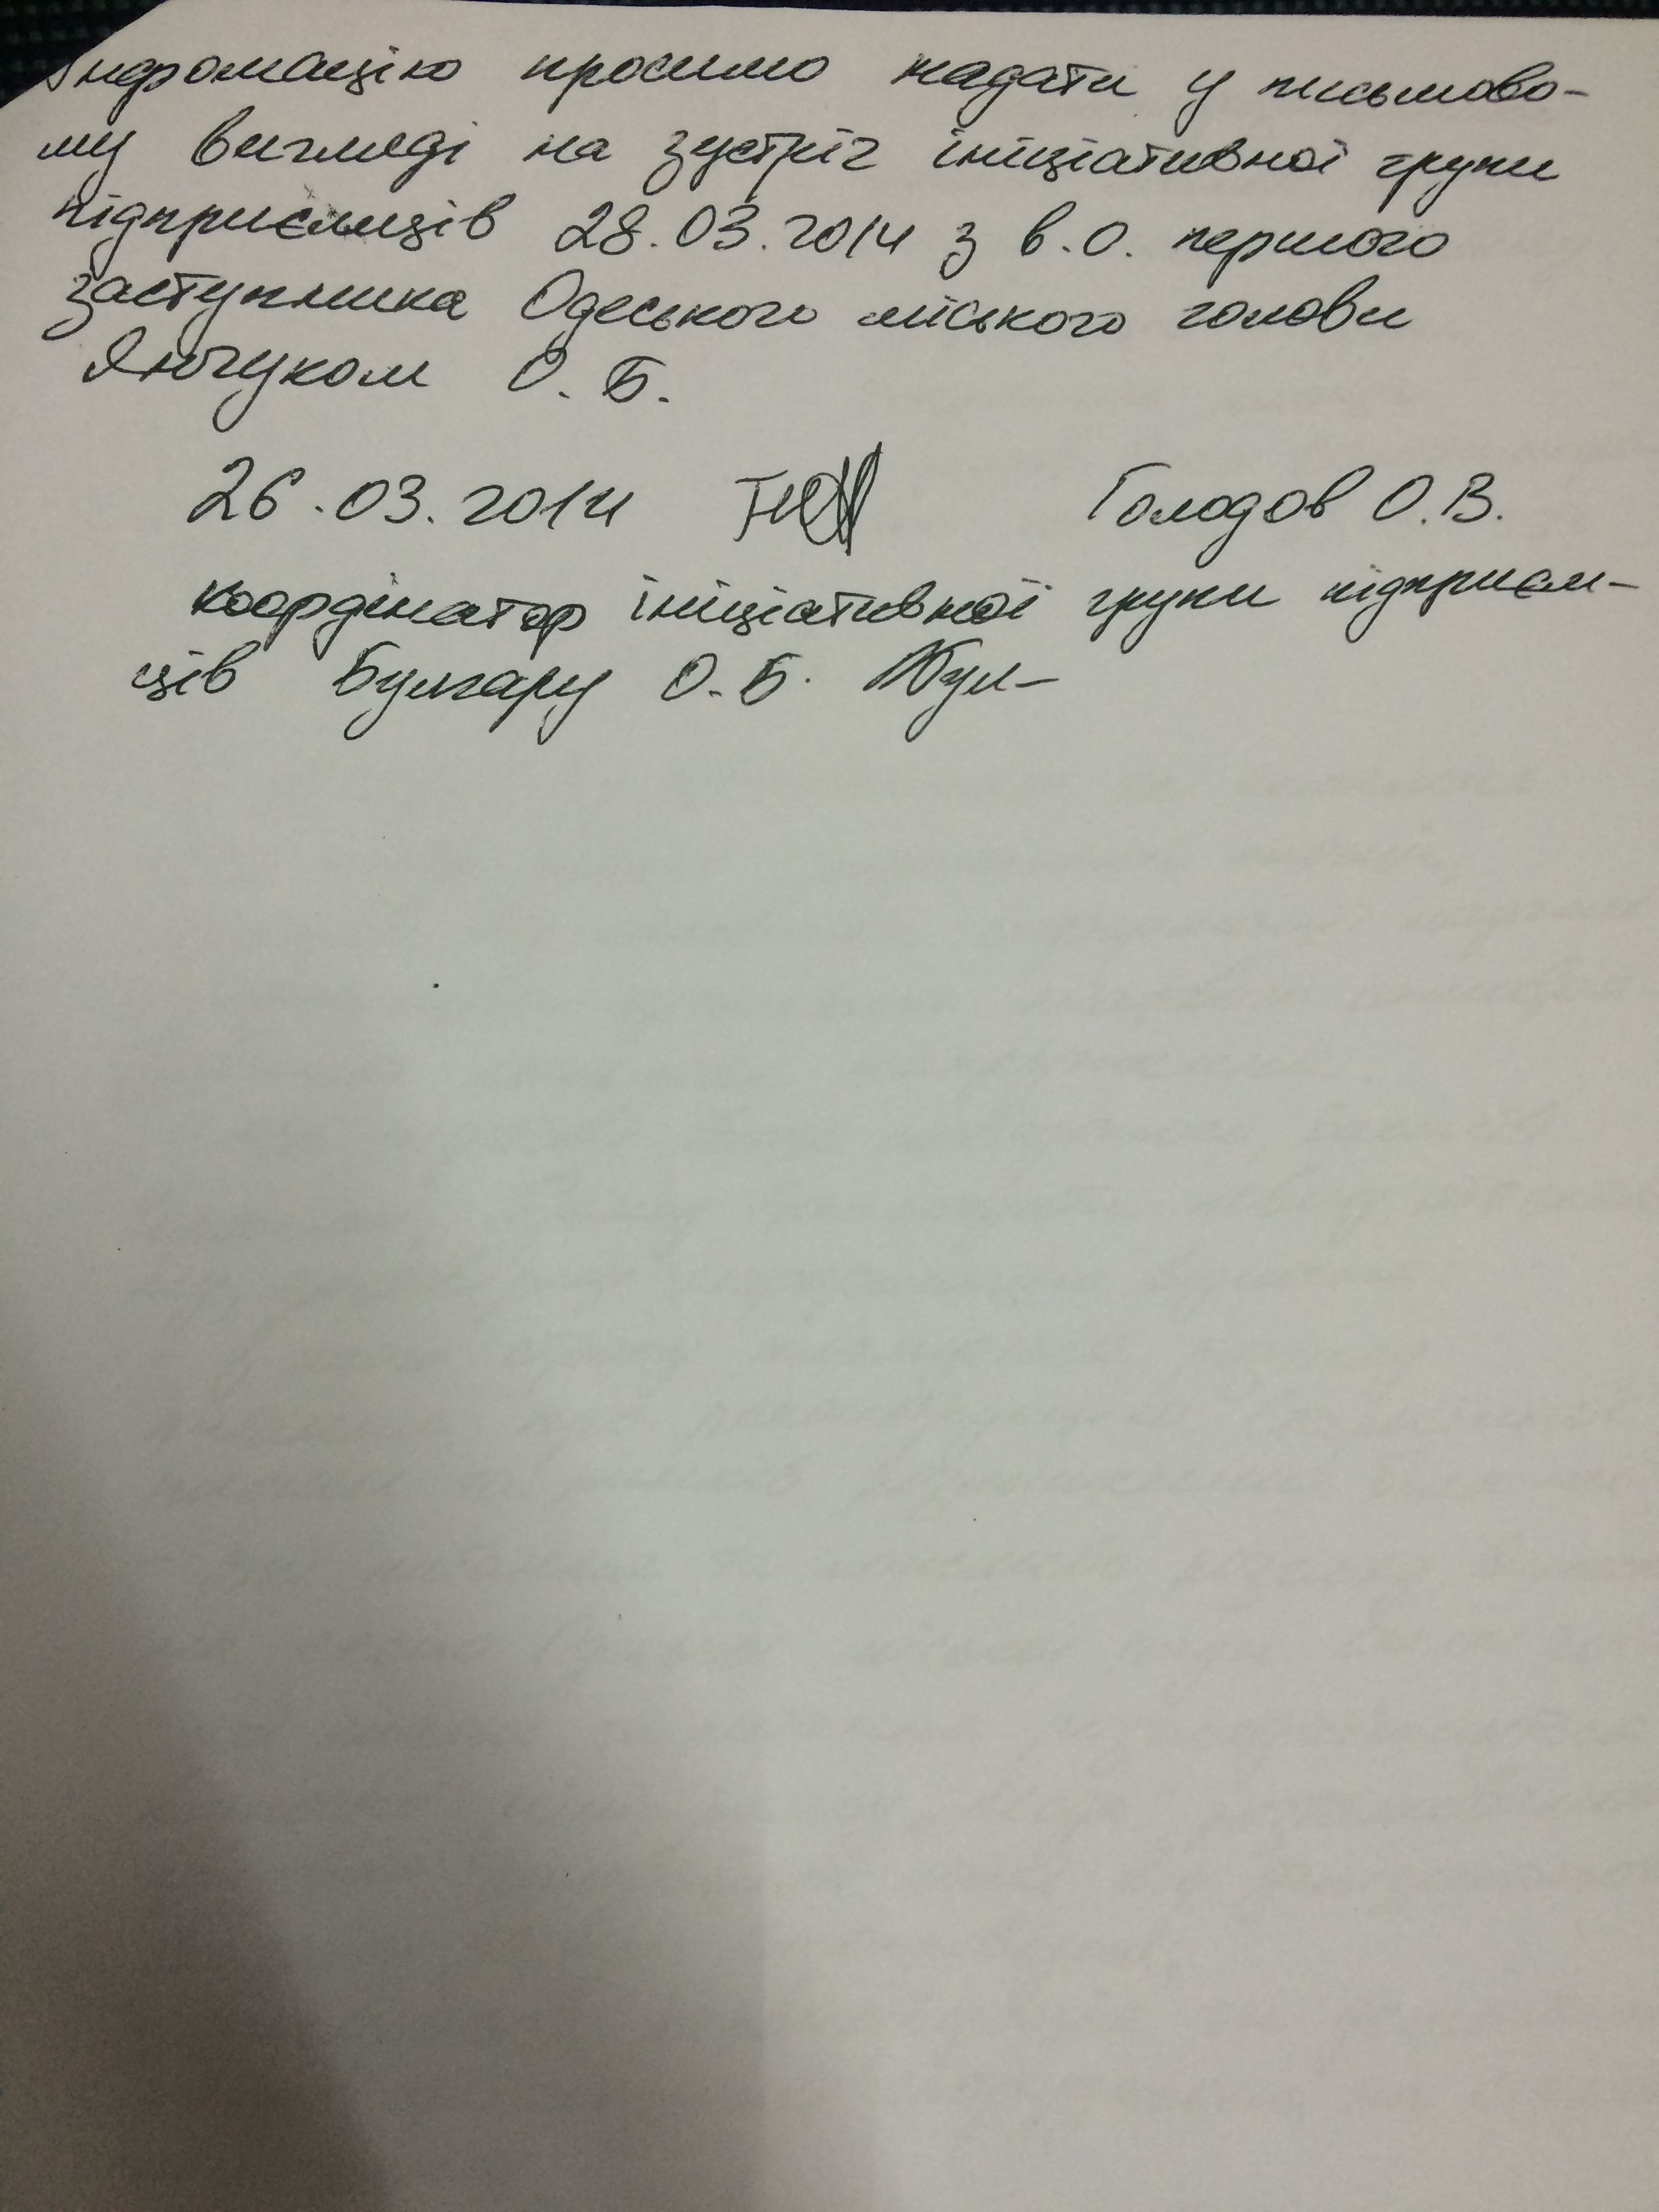 Індромацію просимо надати у письмово-
му вигляді на зустріч ініціативної групи
підприємців 28.03.2014 з в.о. першого
заступника Одеського міського голови
Янчуком О.Б.
26.03.2014 Голодов О.В.
координатор ініціативної групи підприєм-
ців Булгару О.Б.